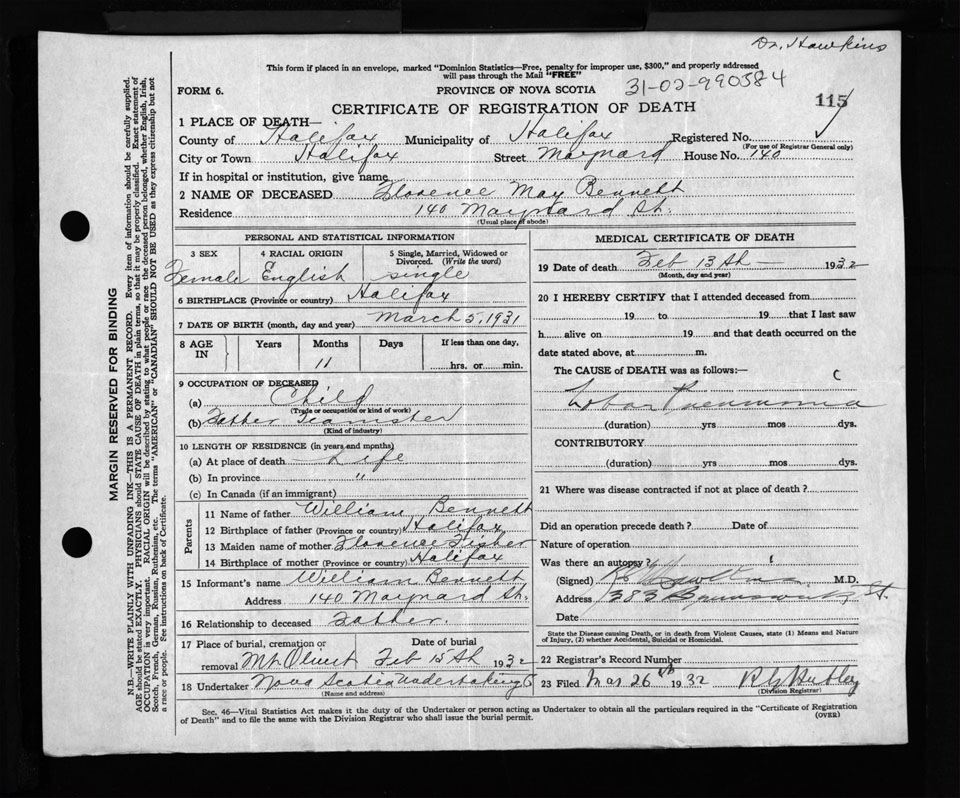 Dr. Hawkins
This form if placed in an envelope, marked "Dominion Statistics—Free, penalty for improper use, $300," and properly addressed
will pass through the Mail "FREE"
FORM 6.
PROVINCE OF NOVA SCOTIA
31-02-990584
CERTIFICATE OF REGISTRATION OF DEATH
115
1 PLACE OF DEATH—
County of Halifax Municipality of Halifax Registered No.
(For use of Registrar General only)
City or Town Halifax Street Maynard House No. 140
If in hospital or institution, give name
2 NAME OF DECEASED Florence May Bennett
Residence 140 Maynard St.
(Usual place of abode)
PERSONAL AND STATISTICAL INFORMATION
3 SEX
Female
4 RACIAL ORIGIN
English
5 Single, Married, Widowed or
Divorced. (Write the word)
single
6 BIRTHPLACE (Province or country) Halifax
7 DATE OF BIRTH (month, day and year) March 5, 1931
8 AGE
IN
Years
Months
11
Days
If less than one day,
hrs. or min.
9 OCCUPATION OF DECEASED
(a) Child
(Trade or occupation or kind of work)
(b) Father Teamster
(Kind of industry)
10 LENGTH OF RESIDENCE (in years and months)
(a) At place of death Life
(b) In province "
(c) In Canada (if an immigrant)
Parents
11 Name of father William Bennett
12 Birthplace of father (Province or country) Halifax
13 Maiden name of mother Florence Fisher
14 Birthplace of mother (Province or country) Halifax
15 Informant's name William Bennett
Address 140 Maynard St.
16 Relationship to deceased Father.
17 Place of burial, cremation or Date of burial
removal Mt. Olivet Feb 15th 1932
18 Undertaker Nova Scotia Undertaking Co
(Name and address)
MEDICAL CERTIFICATE OF DEATH
19 Date of death Feb 13th 1932
(Month, day and year)
20 I HEREBY CERTIFY that I attended deceased from
19 to 19 that I last saw
h alive on 19 and that death occurred on the
date stated above, at m.
The CAUSE of DEATH was as follows:— C
Lobar Pneumonia
(duration) yrs mos dys.
CONTRIBUTORY
(duration) yrs mos dys.
21 Where was disease contracted if not at place of death?
Did an operation precede death? Date of
Nature of operation
Was there an autopsy?
(Signed) Hawkins M.D.
Address 383 Brunswick St.
Date
State the Disease causing Death, or in death from Violent Causes, state (1) Means and Nature
of Injury, (2) whether Accidental, Suicidal or Homicidal.
22 Registrar's Record Number
23 Filed Mar 26th 1932
(Division Registrar)
Sec. 46—Vital Statistics Act makes it the duty of the Undertaker or person acting as Undertaker to obtain all the particulars required in the "Certificate of Registration
of Death" and to file the same with the Division Registrar who shall issue the burial permit.
(OVER)
MARGIN RESERVED FOR BINDING
N.B.—WRITE PLAINLY WITH UNFADING INK—THIS IS A PERMANENT RECORD. Every item of information should be carefully supplied.
AGE should be stated EXACTLY. PHYSICIANS should STATE CAUSE OF DEATH in plain terms, so that it may be properly classified. Exact statement of
OCCUPATION is very important. RACIAL ORIGIN will be described by stating to what people or race the deceased person belonged, whether English, Irish,
Scotch, French, German, Russian, Ruthenian, etc. The terms "AMERICAN" or "CANADIAN" SHOULD NOT BE USED as they express citizenship but not
a race or people. See instructions on back of Certificate.